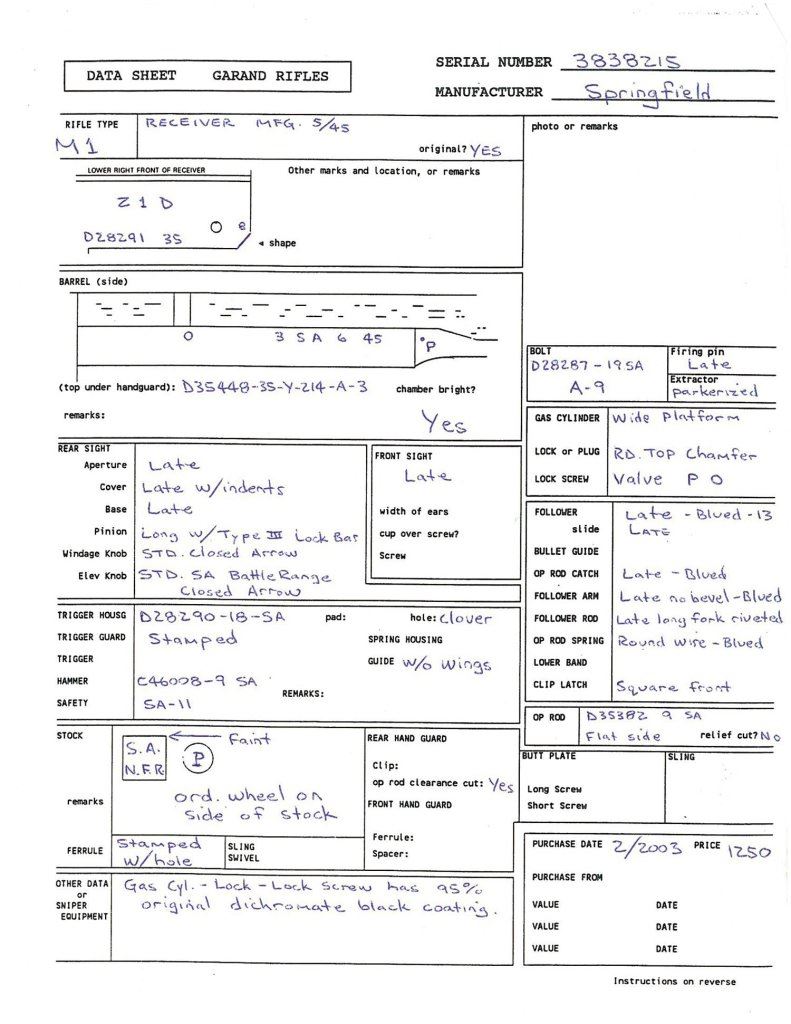 SERIAL NUMBER 3838215
DATA SHEET GARAND RIFLES
MANUFACTURER Springfield
RIFLE TYPE
M1
RECEIVER MFG. 5/45
original? YES
LOWER RIGHT FRONT OF RECEIVER
Z 1 D
D28291 35
◄ shape
Other marks and location, or remarks
photo or remarks
BARREL (side)
O 3 S A 6 45 P
(top under handguard): D35448-35-Y-214-A-3
chamber bright?
Yes
remarks:
BOLT
D28287-19SA
A-9
Firing pin
Late
Extractor
parkerized
GAS CYLINDER Wide Platform
LOCK or PLUG RD. TOP Chamfer
LOCK SCREW Valve P O
REAR SIGHT
Aperture Late
Cover Late w/indents
Base Late
Pinion Long w/Type III Lock Bar
Windage Knob STD. Closed Arrow
Elev Knob STD. SA BattleRange
Closed Arrow
FRONT SIGHT
Late
width of ears
cup over screw?
Screw
FOLLOWER Late - Blued - 13
slide LATE
BULLET GUIDE
OP ROD CATCH Late - Blued
FOLLOWER ARM Late no bevel - Blued
FOLLOWER ROD Late long fork riveted
OP ROD SPRING Round wire - Blued
LOWER BAND
CLIP LATCH Square front
TRIGGER HOUSG D28290-18-SA
pad:
hole: Clover
TRIGGER GUARD Stamped
SPRING HOUSING
TRIGGER
GUIDE w/o wings
HAMMER C46008-9 SA
REMARKS:
SAFETY SA-11
OP ROD D35382 9 SA
Flat side
relief cut? No
STOCK
S.A.
N.F.R.
faint
P
remarks
ord. wheel on
side of stock
FERRULE Stamped
w/hole
SLING
SWIVEL
REAR HAND GUARD
Clip:
op rod clearance cut: Yes
FRONT HAND GUARD
Ferrule:
Spacer:
BUTT PLATE
Long Screw
Short Screw
SLING
PURCHASE DATE 2/2003 PRICE 1250
PURCHASE FROM
VALUE DATE
VALUE DATE
VALUE DATE
OTHER DATA
or
SNIPER
EQUIPMENT
Gas Cyl. - Lock - Lock Screw has 95%
original dichromate black coating.
Instructions on reverse